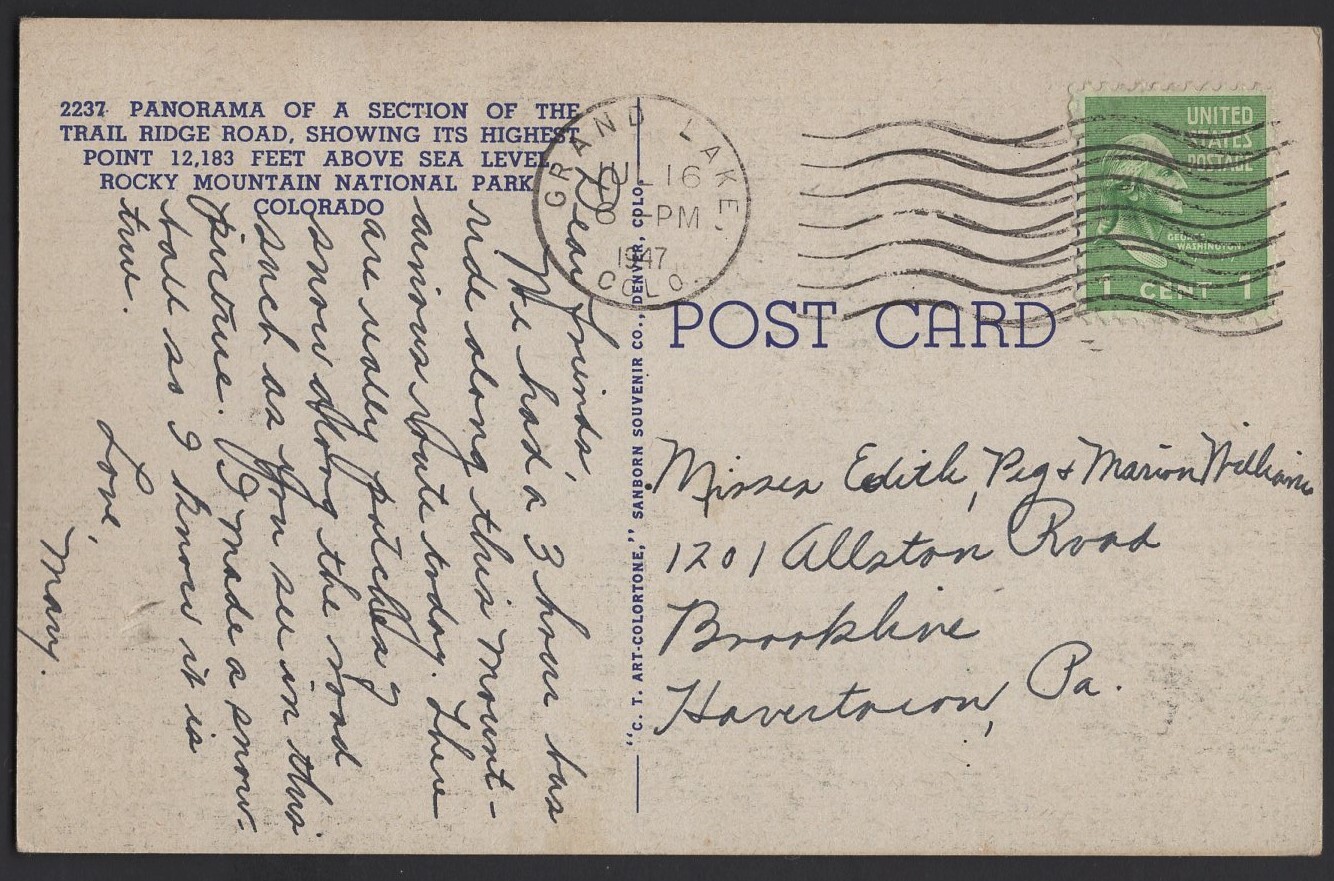 2237 PANORAMA OF A SECTION OF THE
TRAIL RIDGE ROAD, SHOWING ITS HIGHEST
POINT 12,183 FEET ABOVE SEA LEVEL
ROCKY MOUNTAIN NATIONAL PARK
COLORADO
GRAND LAKE
JUL 16
6 -PM
1947
COLO.
UNITED
STATES
POSTAGE
GEORGE
WASHINGTON
1 CENT 1
POST CARD
"C. T. ART-COLORTONE," SANBORN SOUVENIR CO., DENVER, COLO.
Dear Friends,
We had a 3 hour bus
ride along this mount-
ainous route today. There
are really patches of
snow along the road
such as you see in this
picture. I made a snow-
ball so I know it is
true.
Love,
Mary.
Misses Edith, Peg & Marion Williams
1201 Allston Road
Brookline
Havertown, Pa.